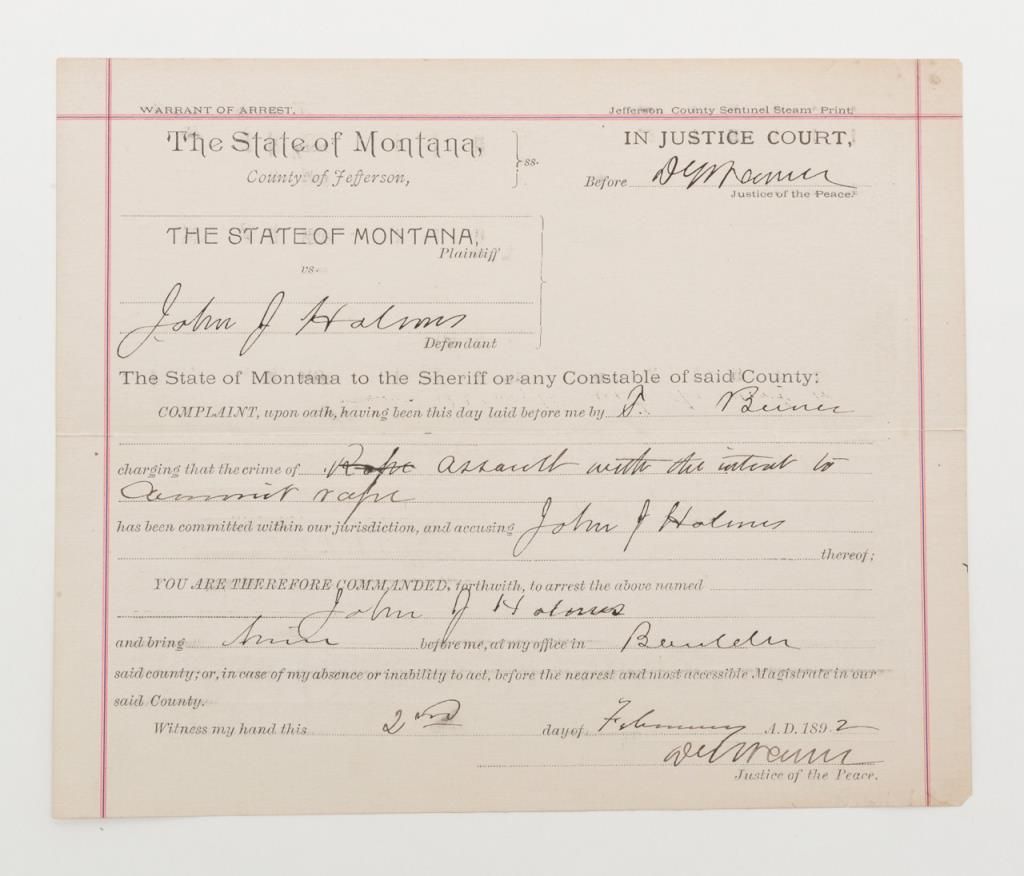 WARRANT OF ARREST. Jefferson County Sentinel Steam Print.
The State of Montana, ss. IN JUSTICE COURT,
County of Jefferson, Before
Justice of the Peace.
THE STATE OF MONTANA,
Plaintiff
vs.
John J Holmes
Defendant
The State of Montana to the Sheriff or any Constable of said County:
COMPLAINT, upon oath, having been this day laid before me by T.
charging that the crime of Rape assault with the intent to
commit rape
has been committed within our jurisdiction, and accusing John J Holmes
thereof;
YOU ARE THEREFORE COMMANDED, forthwith, to arrest the above named
John J Holmes
and bring him before me, at my office in Boulder
said county; or, in case of my absence or inability to act, before the nearest and most accessible Magistrate in our
said County.
Witness my hand this 2nd day of February A.D. 1892
Justice of the Peace.